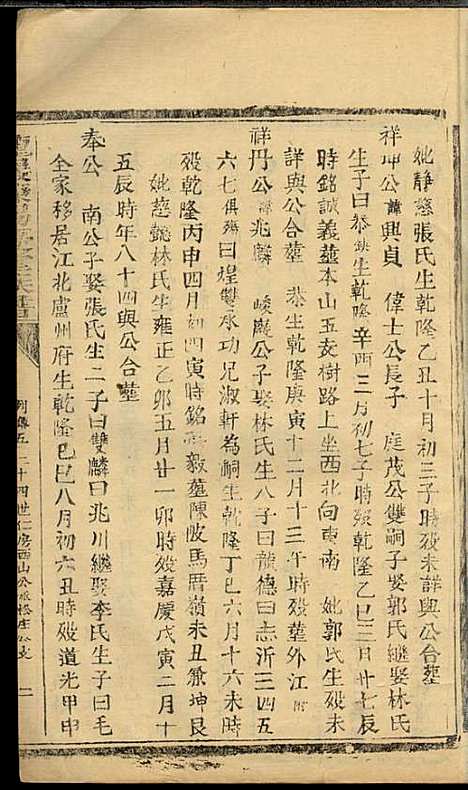 妣靜慈張氏生乾隆乙丑十月初三子時殁未詳與公合塟
祥坤公諱興貞 偉士公長子 庭茂公雙嗣子娶郭氏継娶林氏
生子曰恭 生乾隆辛酉三月初七子時殁乾隆乙巳三月廿七辰
時銘誠義塟本山五友樹路上坐西北向東南 妣郭氏生殁未
詳與公合塟 恭生乾隆庚寅十二月十三午時殁塟外江
祥丹公諱兆麟 峻嚴公子娶林氏生八子曰龍德曰志沂三四五
六七俱殤曰煌雙承功兄淑軒為嗣生乾隆丁巳六月十六未時
殁乾隆丙申四月初四寅時銘 毅塟陳陂馬厝嶺未丑兼坤艮
妣慈懿林氏生雍正乙卯五月廿一卯時殁嘉慶戊寅二月十
五辰時年八十四與公合塟
奉公 南公子娶張氏生二子曰雙麟曰兆川継娶李氏生子曰毛
全家移居江北盧州府生乾隆己巳八月初六丑時殁道光甲申
列傳五 二十四世仁房西山公派松庄公支 二